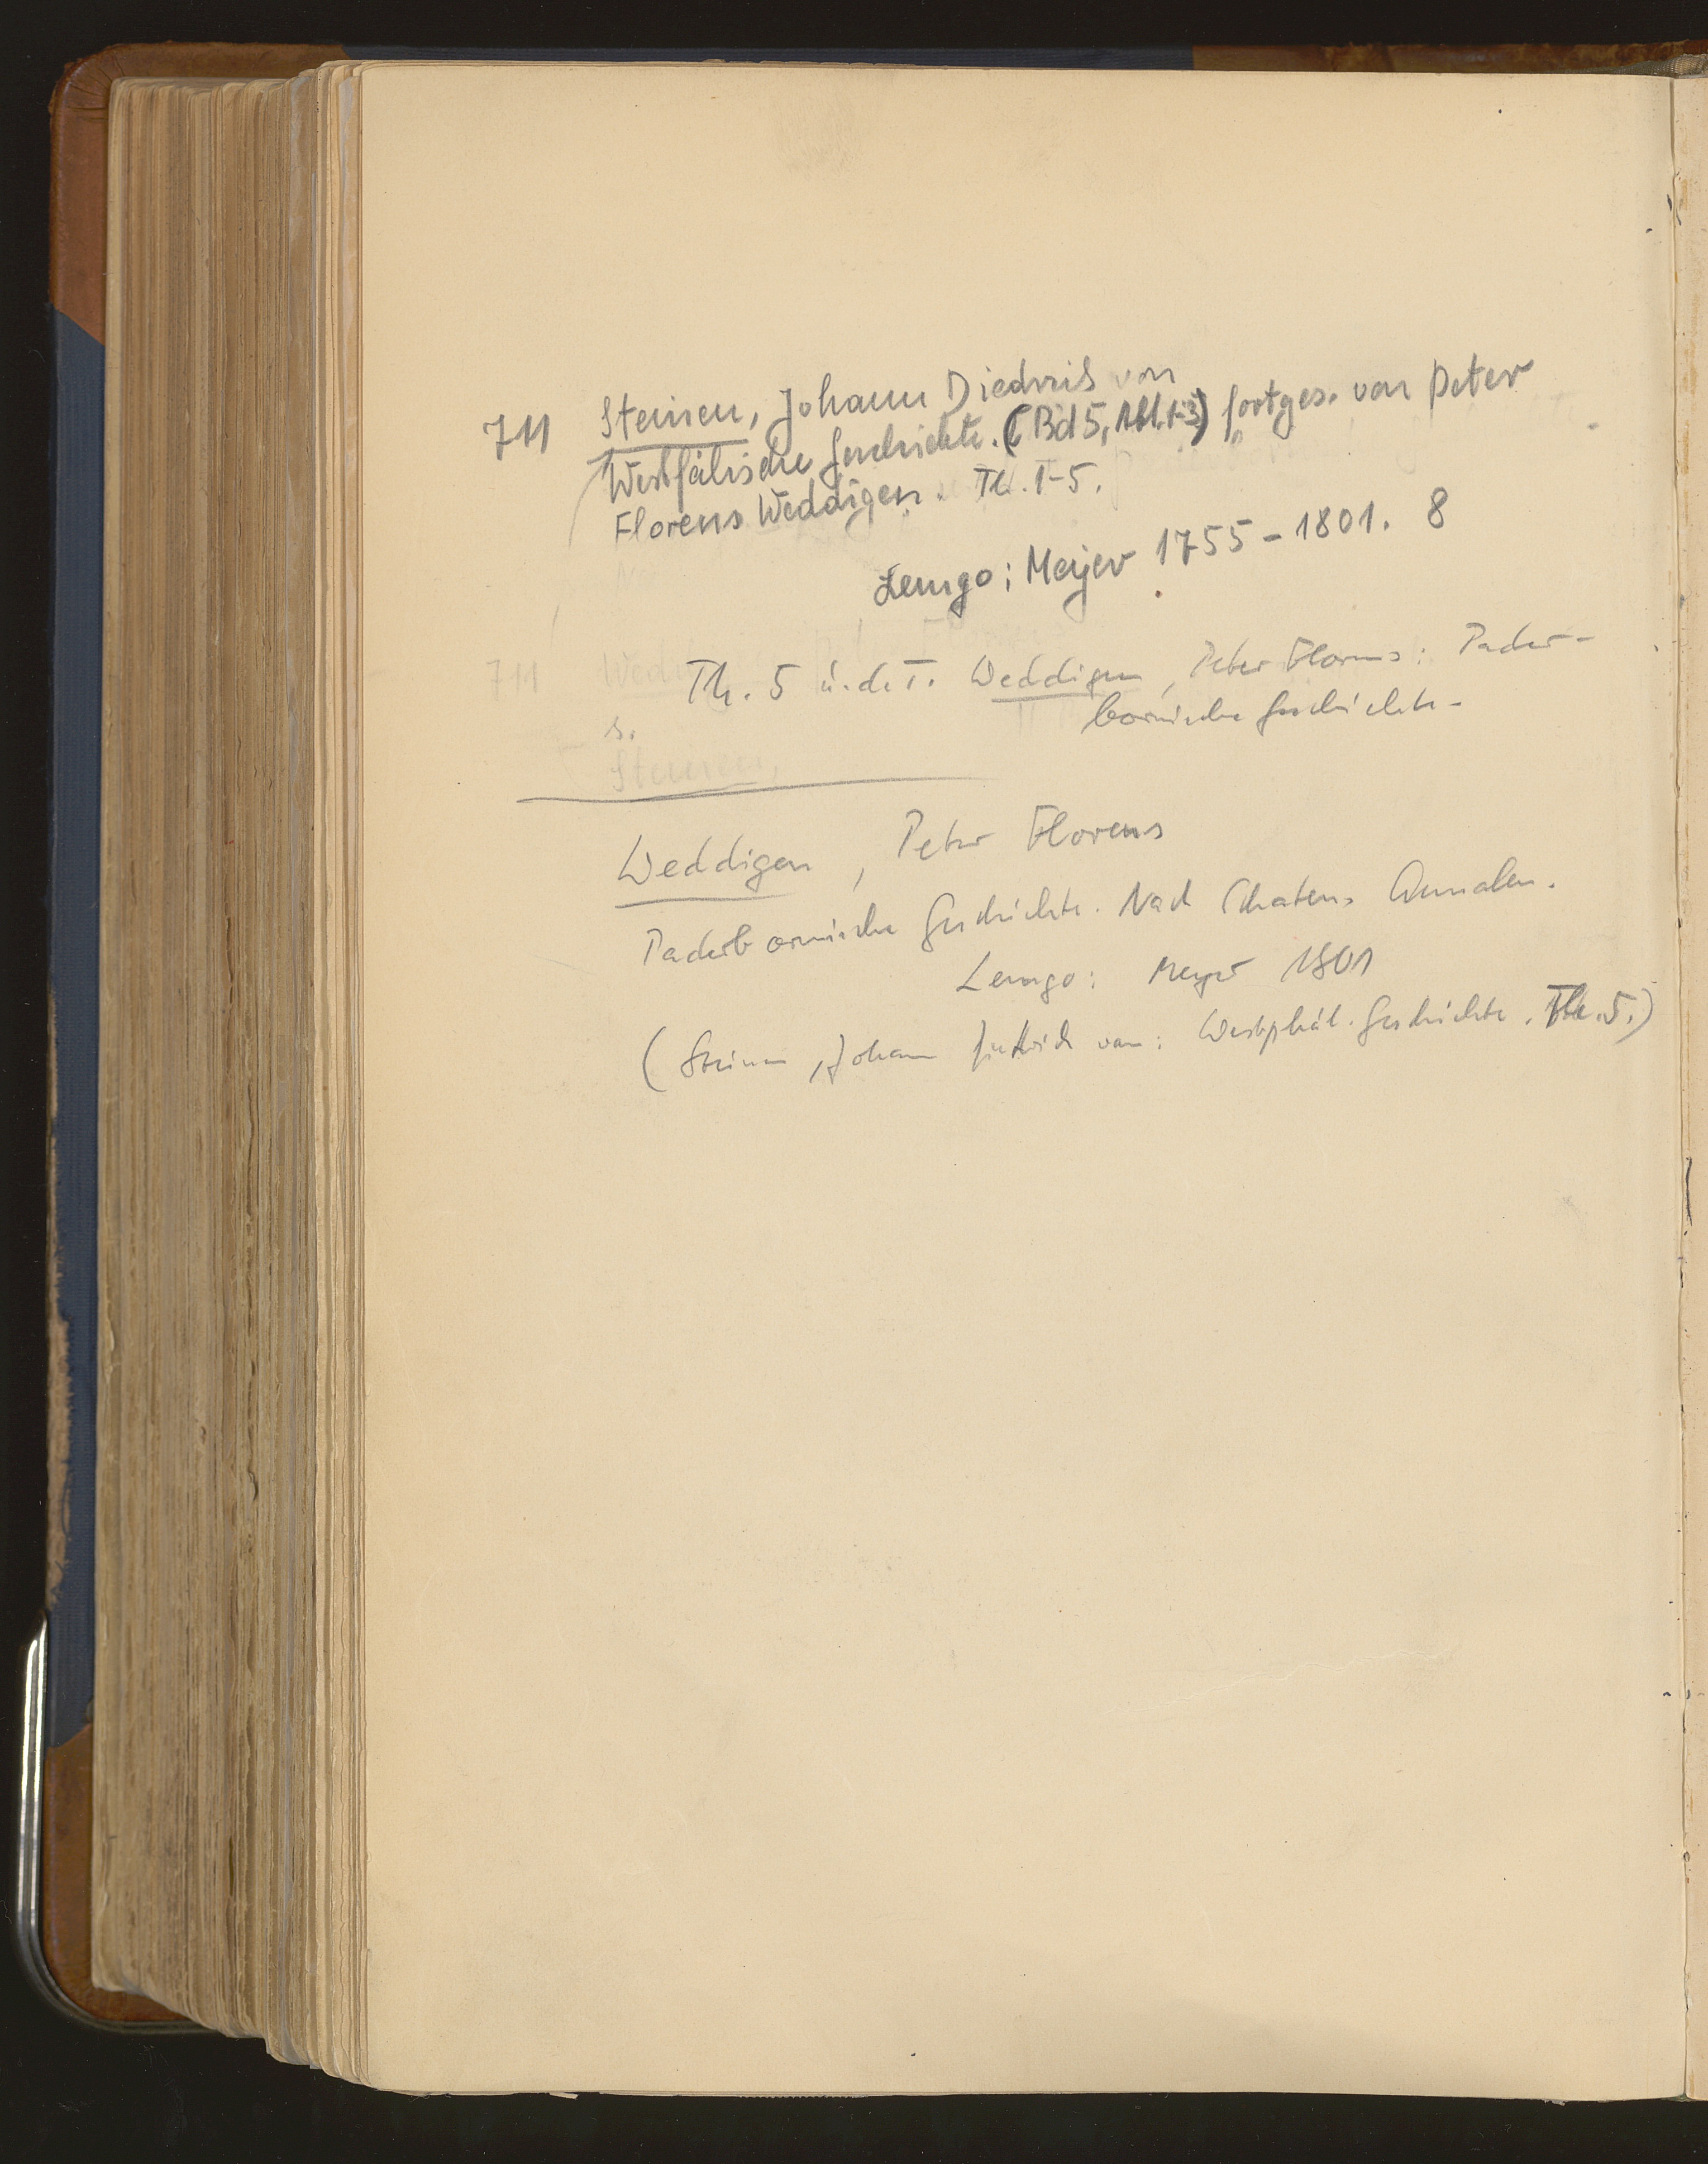 711 Steinen, Johann Diedrich von
Westfälische Geschichte. (Bd 5, Abt. 1-3) fortges. von Peter
Florens Weddigen. Th. 1-5.
Lemgo: Meyer 1755-1801. 8
711 Wedd
Th. 5 u. d. T. Weddigen, Peter Florens: Pader-
bornische Geschichte-
s.
Steinen,
Weddigen, Peter Florens
Paderbornische Geschichte. Nach Schatens Annalen.
Lemgo: Meyer 1801
(Steinen, Johann Dietrich von: Westphäl. Geschichte. Th. 5.)